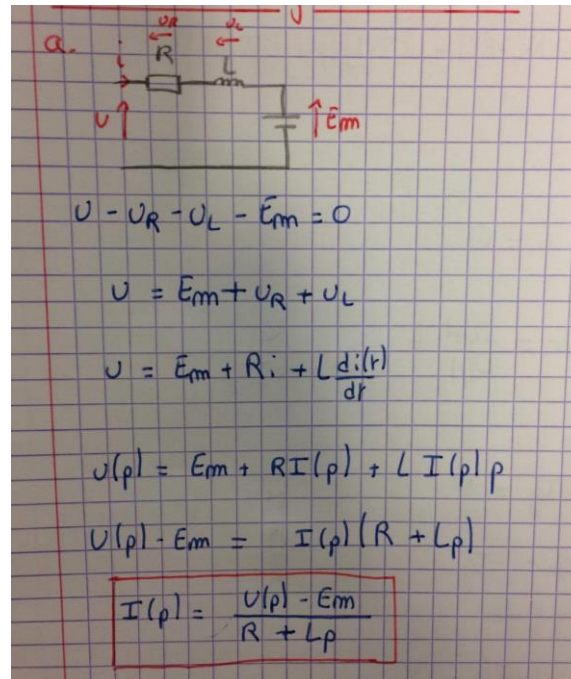 a.
UR UL
R L
i
U Em
U - UR - UL - Em = 0
U = Em + UR + UL
U = Em + Ri + L di(t)/dt
U(p) = Em + RI(p) + L I(p) p
U(p) - Em = I(p) (R + Lp)
I(p) = U(p) - Em / R + Lp